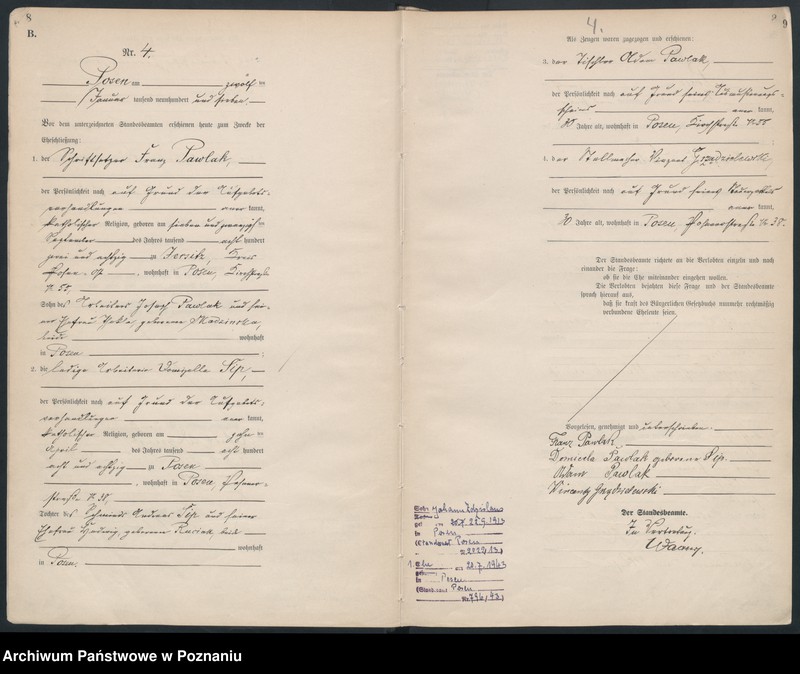 8
B.
Nr. 4.
Posen am zwölf ten
Januar tausend neunhundert und sieben.
Vor dem unterzeichneten Standesbeamten erschienen heute zum Zwecke der
Eheschließung:
1. der Schriftsetzer Franz Pawlak,
der Persönlichkeit nach auf Grund der Aufgebots-
verhandlungen kannt,
katholischer Religion, geboren am sieben und zwanzigsten
September des Jahres tausend acht hundert
zwei und achtzig zu Jersitz, Kreis
Posen-Ost, wohnhaft in Posen, Kirchstraße
N. 55,
Sohn des Arbeiters Joseph Pawlak und sei-
ner Ehefrau geborene
beide wohnhaft
in Posen;
2. die ledige Arbeiterin Domizella Sip,
der Persönlichkeit nach auf Grund der Aufgebots-
verhandlungen kannt,
katholischer Religion, geboren am zehn ten
April des Jahres tausend acht hundert
acht und achtzig zu Posen
, wohnhaft in Posen, Posener-
straße N. 38,
Tochter des Schmieds Andreas Sip und seiner
Ehefrau Hedwig geborenen beide
wohnhaft
in Posen.
9
4.
Als Zeugen waren zugezogen und erschienen:
3. der Tischler Adam Pawlak,
der Persönlichkeit nach auf Grund seines Ausmusterungs-
scheins kannt,
Jahre alt, wohnhaft in Posen, Kirchstraße N. 55
4. der Stellmacher Vinzent
der Persönlichkeit nach auf Grund seines
kannt,
30 Jahre alt, wohnhaft in Posen, Posenerstraße N. 38.
Der Standesbeamte richtete an die Verlobten einzeln und nach
einander die Frage:
ob sie die Ehe miteinander eingehen wollen.
Die Verlobten bejahten diese Frage und der Standesbeamte
sprach hierauf aus,
daß sie kraft des Bürgerlichen Gesetzbuchs nunmehr rechtmäßig
verbundene Eheleute seien.
Vorgelesen, genehmigt und unterschrieben.
Franz Pawlak
Domicela Pawlak geborene Sip.
Adam Pawlak
Wincenty
Der Standesbeamte.
In Vertretung.
Johann
1913
in Posen
(Standesamt Posen
1. Ehe am 20.7.1943
in Posen
(Standesamt Posen
Nr. 796/43)
Archiwum Państwowe w Poznaniu